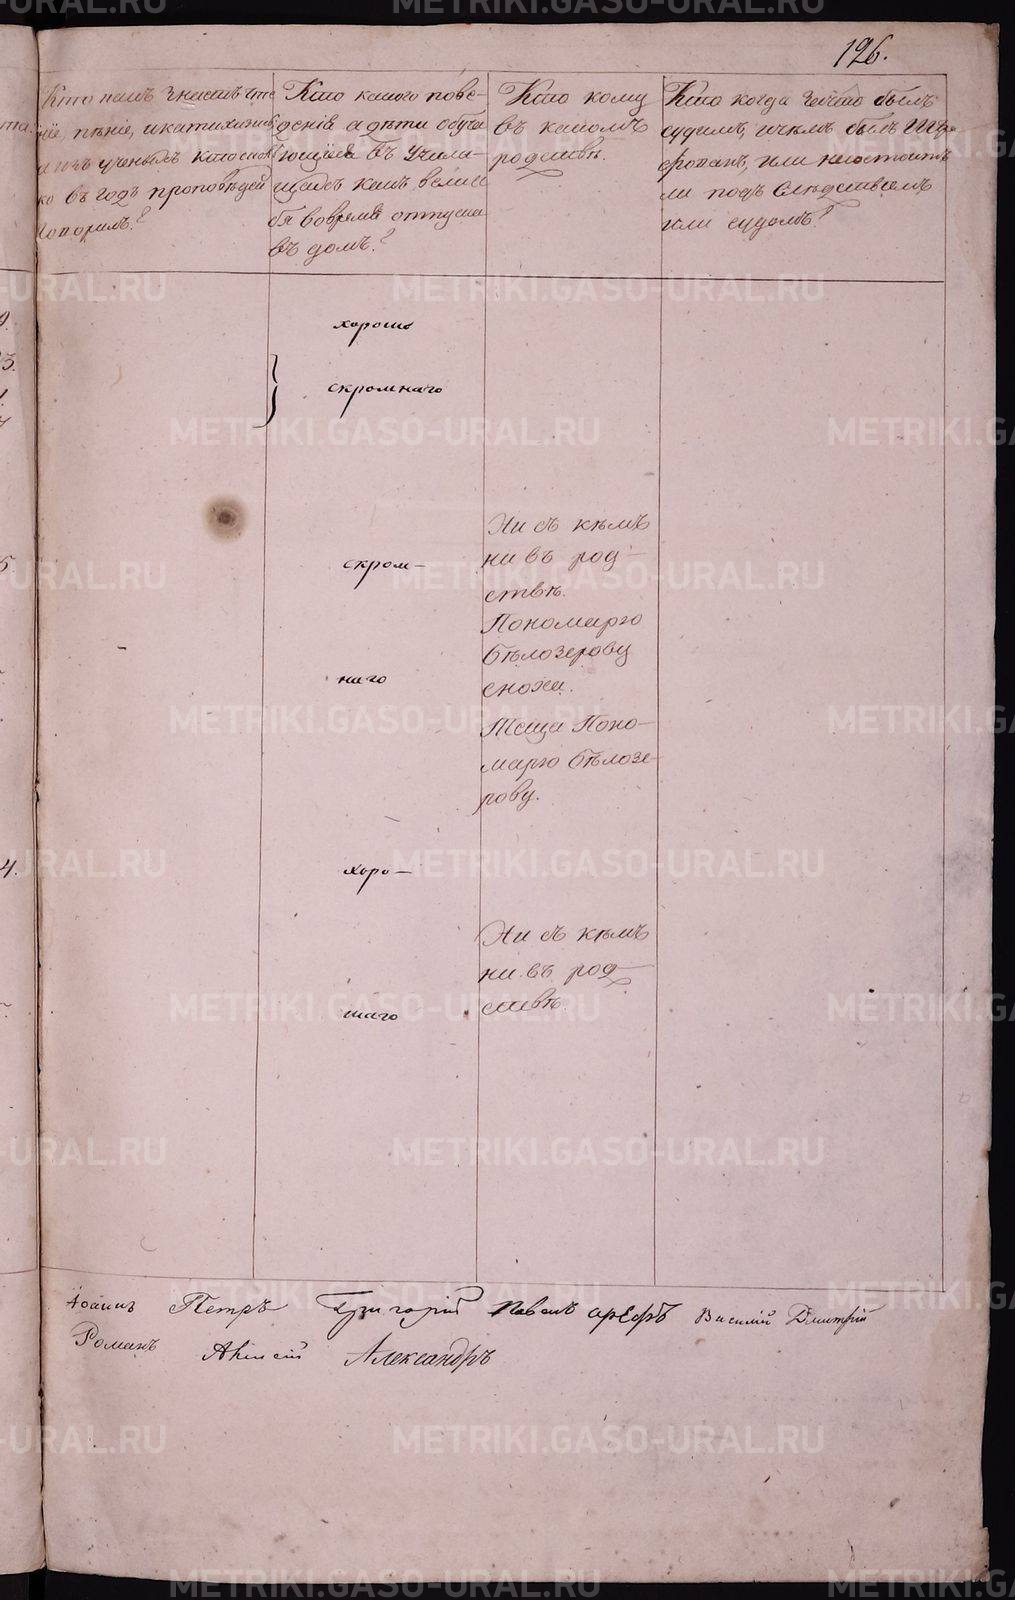 126.
Кто какъ знаетъ чте
ніе пѣніе, и катихизисъ,
а изъ ученыхъ кто сколь
ко въ годъ проповѣдей
говорилъ?
Кто какого пове-
денія а дѣти обуча
ющіеся въ Учили-
щахъ
во время отпуска
въ домъ?
Кто кому
въ какомъ
родствѣ.
Кто когда за что былъ
судимъ, и чѣмъ былъ Шт-
рафованъ, или не состоитъ
ли подъ Слѣдствіемъ
или судомъ?
хорошо
скромнаго
скром-
наго
хоро-
шаго
Ни съ кѣмъ
ни въ род-
ствѣ.
Пономарю
Бѣлозерову
сноха.
Теща Поно-
марю Бѣлозе-
рову.
Ни съ кѣмъ
ни въ род-
ствѣ.
Іоаннъ Петръ Григорій Павелъ Арефъ Василій Дмитрій
Романъ Алексій Александръ
METRIKI.GASO-URAL.RU